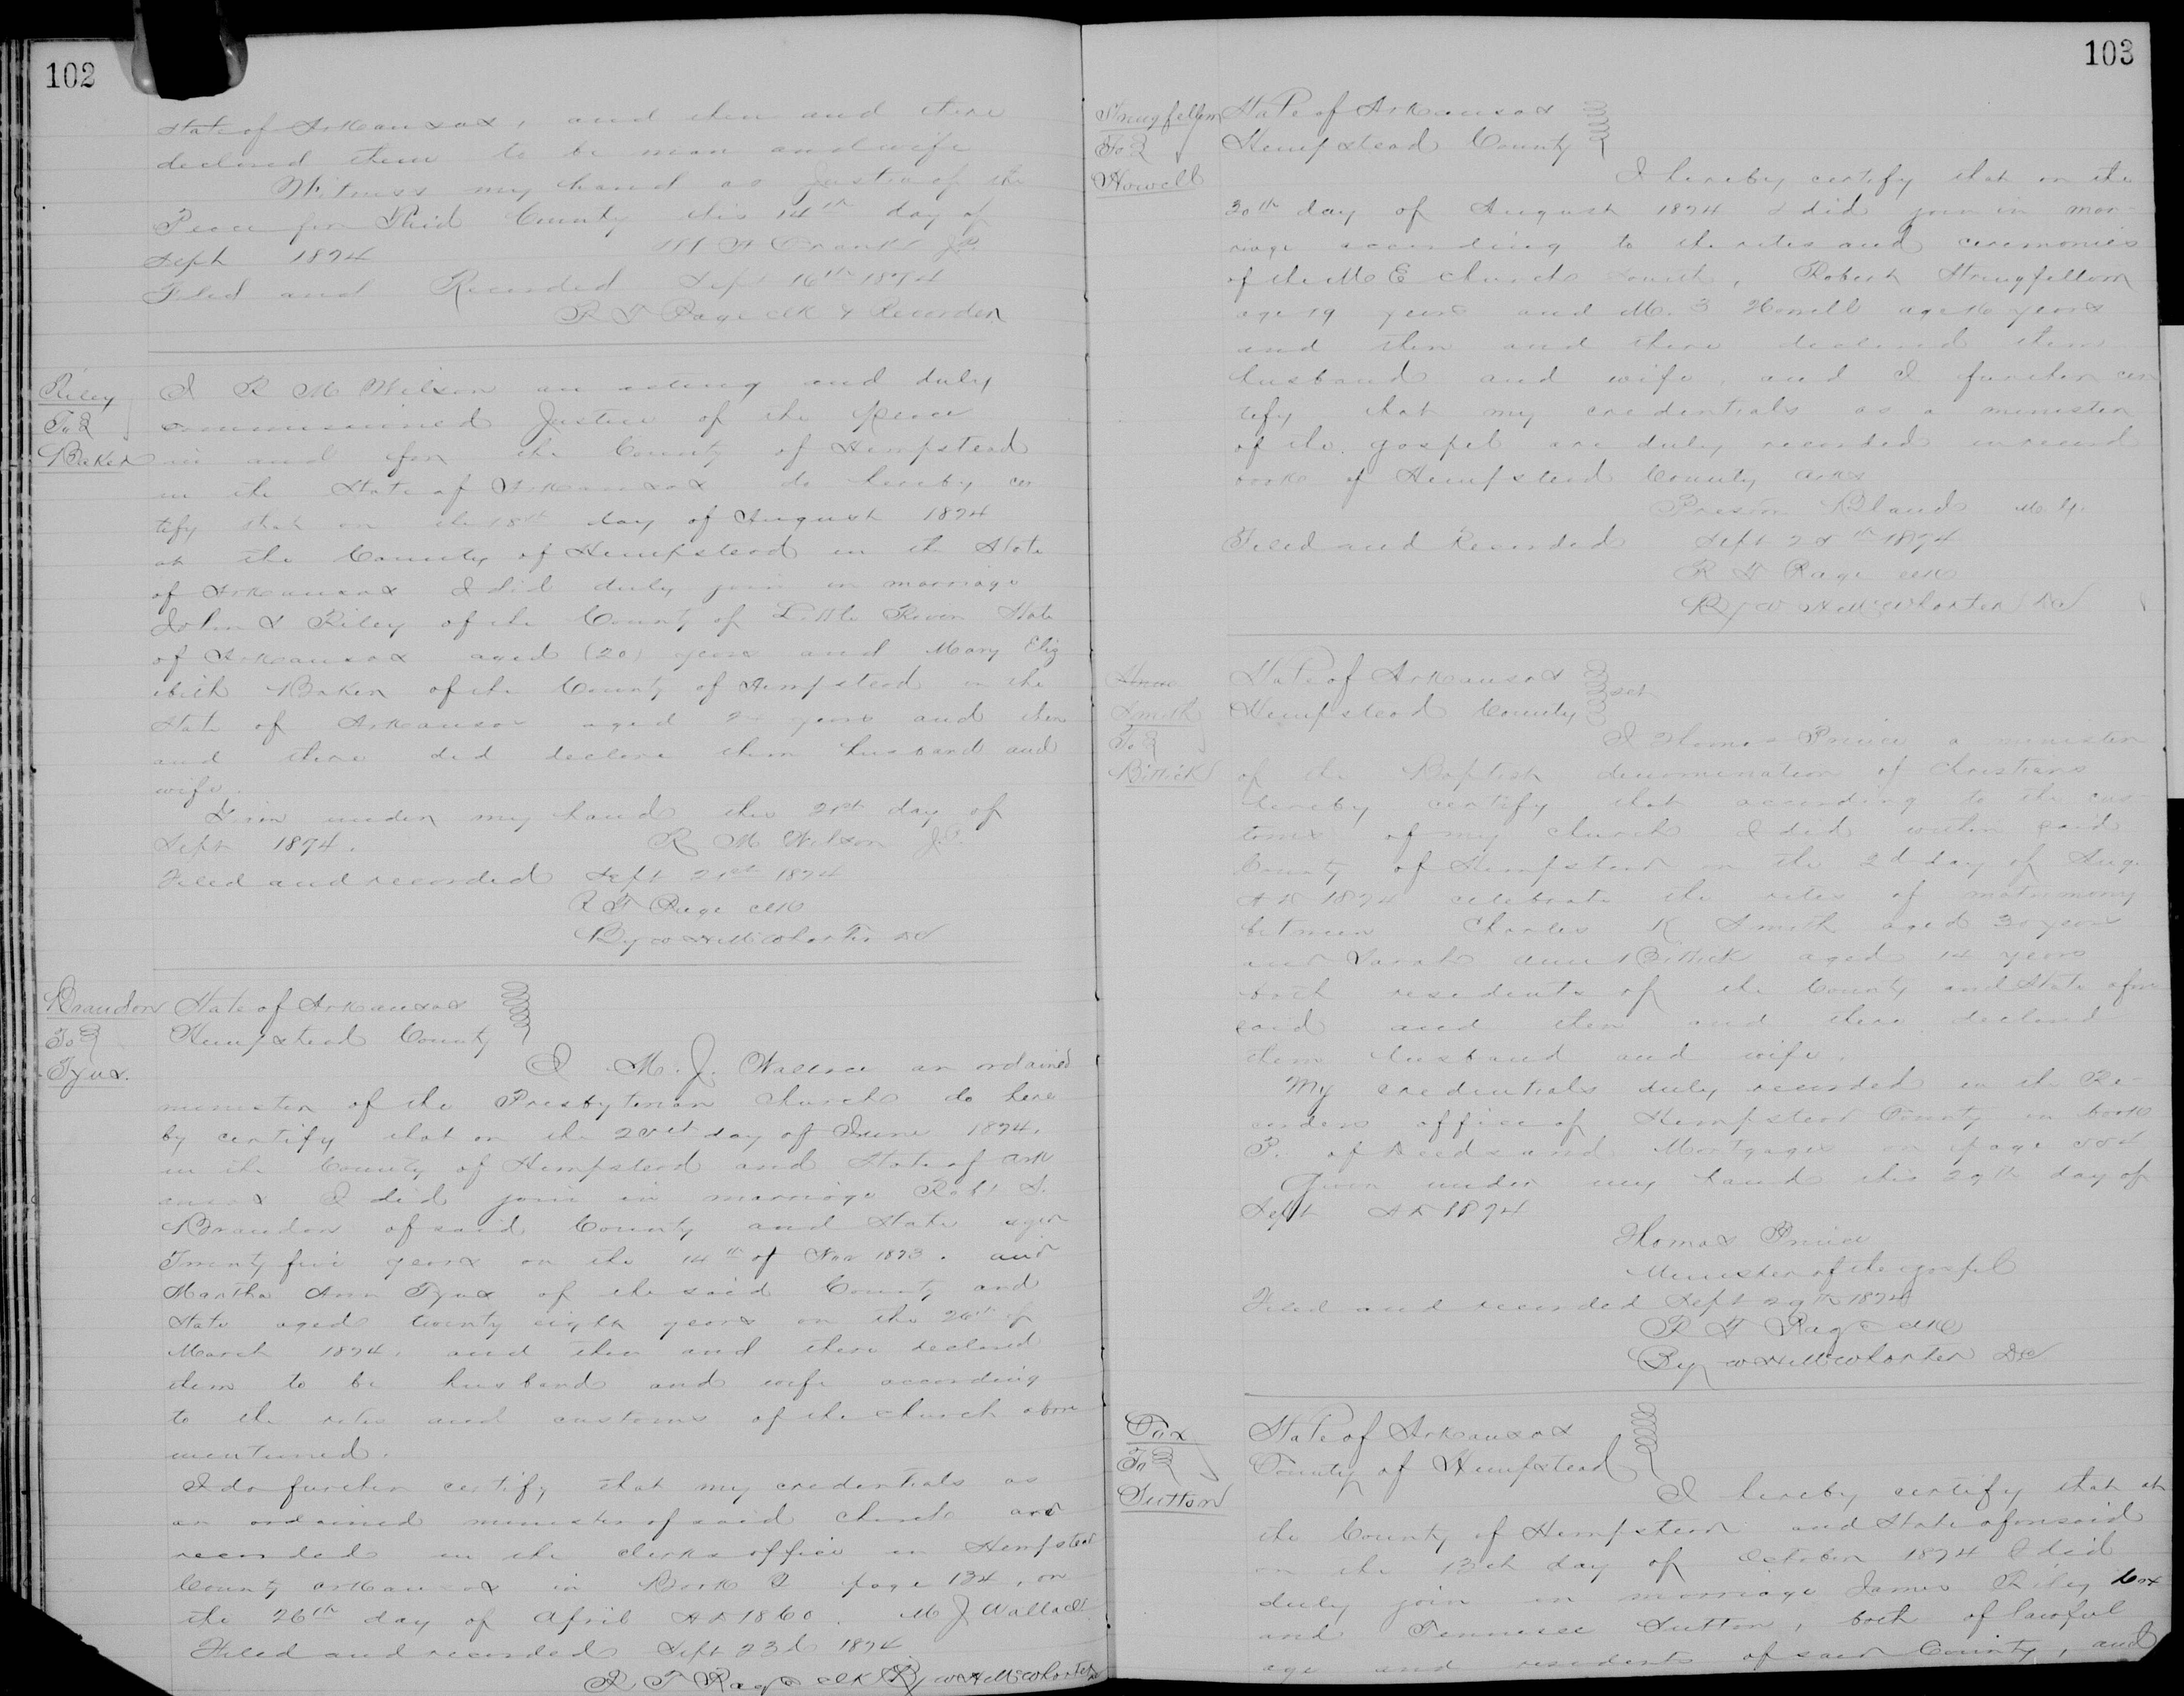 102
State of Arkansas, and then and there
declared them to be man and wife
Witness my hand as justice of the
Peace for Said County this 14th day of
Sept 1874 J.P.
Filed and Recorded Sept 16th 1874
R T Page clk & Recorder
Riley
To
Baker
I R M Wilson an acting and duly
commissioned Justice of the Peace
in and for the County of Hempstead
in the State of Arkansas do hereby cer
tify that on the 18th day of August 1874
at the County of Hempstead in the State
of Arkansas I did duly join in marriage
John S Riley of the County of Little River State
of Arkansas aged (20) years and Mary Eliz
ibeth Baker of the County of Hempstead in the
State of Arkansas aged years and then
and there did declare them husband and
wife.
Given under my hand this 21st day of
Sept 1874. R M Wilson J.P.
Filed and recorded Sept 21st 1874
R T Page clk
By W H McWhorter DC
Brandon
To
Tyus.
State of Arkansas
Hempstead County
I M. J. Wallace an ordained
minister of the Presbyterian Church do here
by certify that on the day of June 1874.
in the County of Hempstead and State of Ark
ansas I did join in marriage Robt S.
Brandon of said County and State aged
Twenty five years on the 14th of 1873. and
Martha Ann Tyus of the said County and
State aged twenty eight years on the of
March 1874. and then and there declared
them to be husband and wife according
to the rites and customs of the church above
mentioned.
I do further certify that my credentials as
an ordained minister of said church are
recorded in the clerks office in Hempstead
County Arkansas in Book page 134, on
the 26th day of April AD 1860. M J Wallace
Filed and recorded Sept 23d 1874
R T Page clk By W H McWhorter
103
Stringfellow
To
Howell
State of Arkansas
Hempstead County
I hereby certify that on the
30th day of August 1874 I did join in mar
riage according to the rites and ceremonies
of the M E Church South, Robert Stringfellow
age 19 years and M. Howell age 16 years
and then and there declared them
husband and wife, and I further cer
tify that my credentials as a minister
of the gospel are duly recorded in record
book of Hempstead County Arks
Bland M. G.
Filed and Recorded Sept 1874
R T Page clk
By W H McWhorter DC
Smith
To
Bittick
State of Arkansas
Hempstead County sct
I Thomas Prince a minister
of the Baptist denomination of Christians
hereby certify that according to the cus
toms of my church I did within said
County of Hempstead on the 2d day of Aug.
AD 1874 celebrate the rites of matrimony
between Charles K Smith aged 30 years
and Sarah Ann Bittick aged 14 years
both residents of the County and State afore
said and then and there declared
them husband and wife.
My credentials duly recorded in the Re-
corders office of Hempstead County in book
P. of Deeds and Mortgages on page
Given under my hand this 29th day of
Sept AD 1874
Thomas Prince
Minister of the gospel
Filed and recorded Sept 29th 1874
R T Page clk
By W H McWhorter DC
Cox
To
Sutton
State of Arkansas
County of Hempstead
I hereby certify that at
the County of Hempstead and State aforesaid
on the 13th day of October 1874 I did
duly join in marriage James Riley Cox
and Tennessee Sutton, both of lawful
age and residents of said County, and